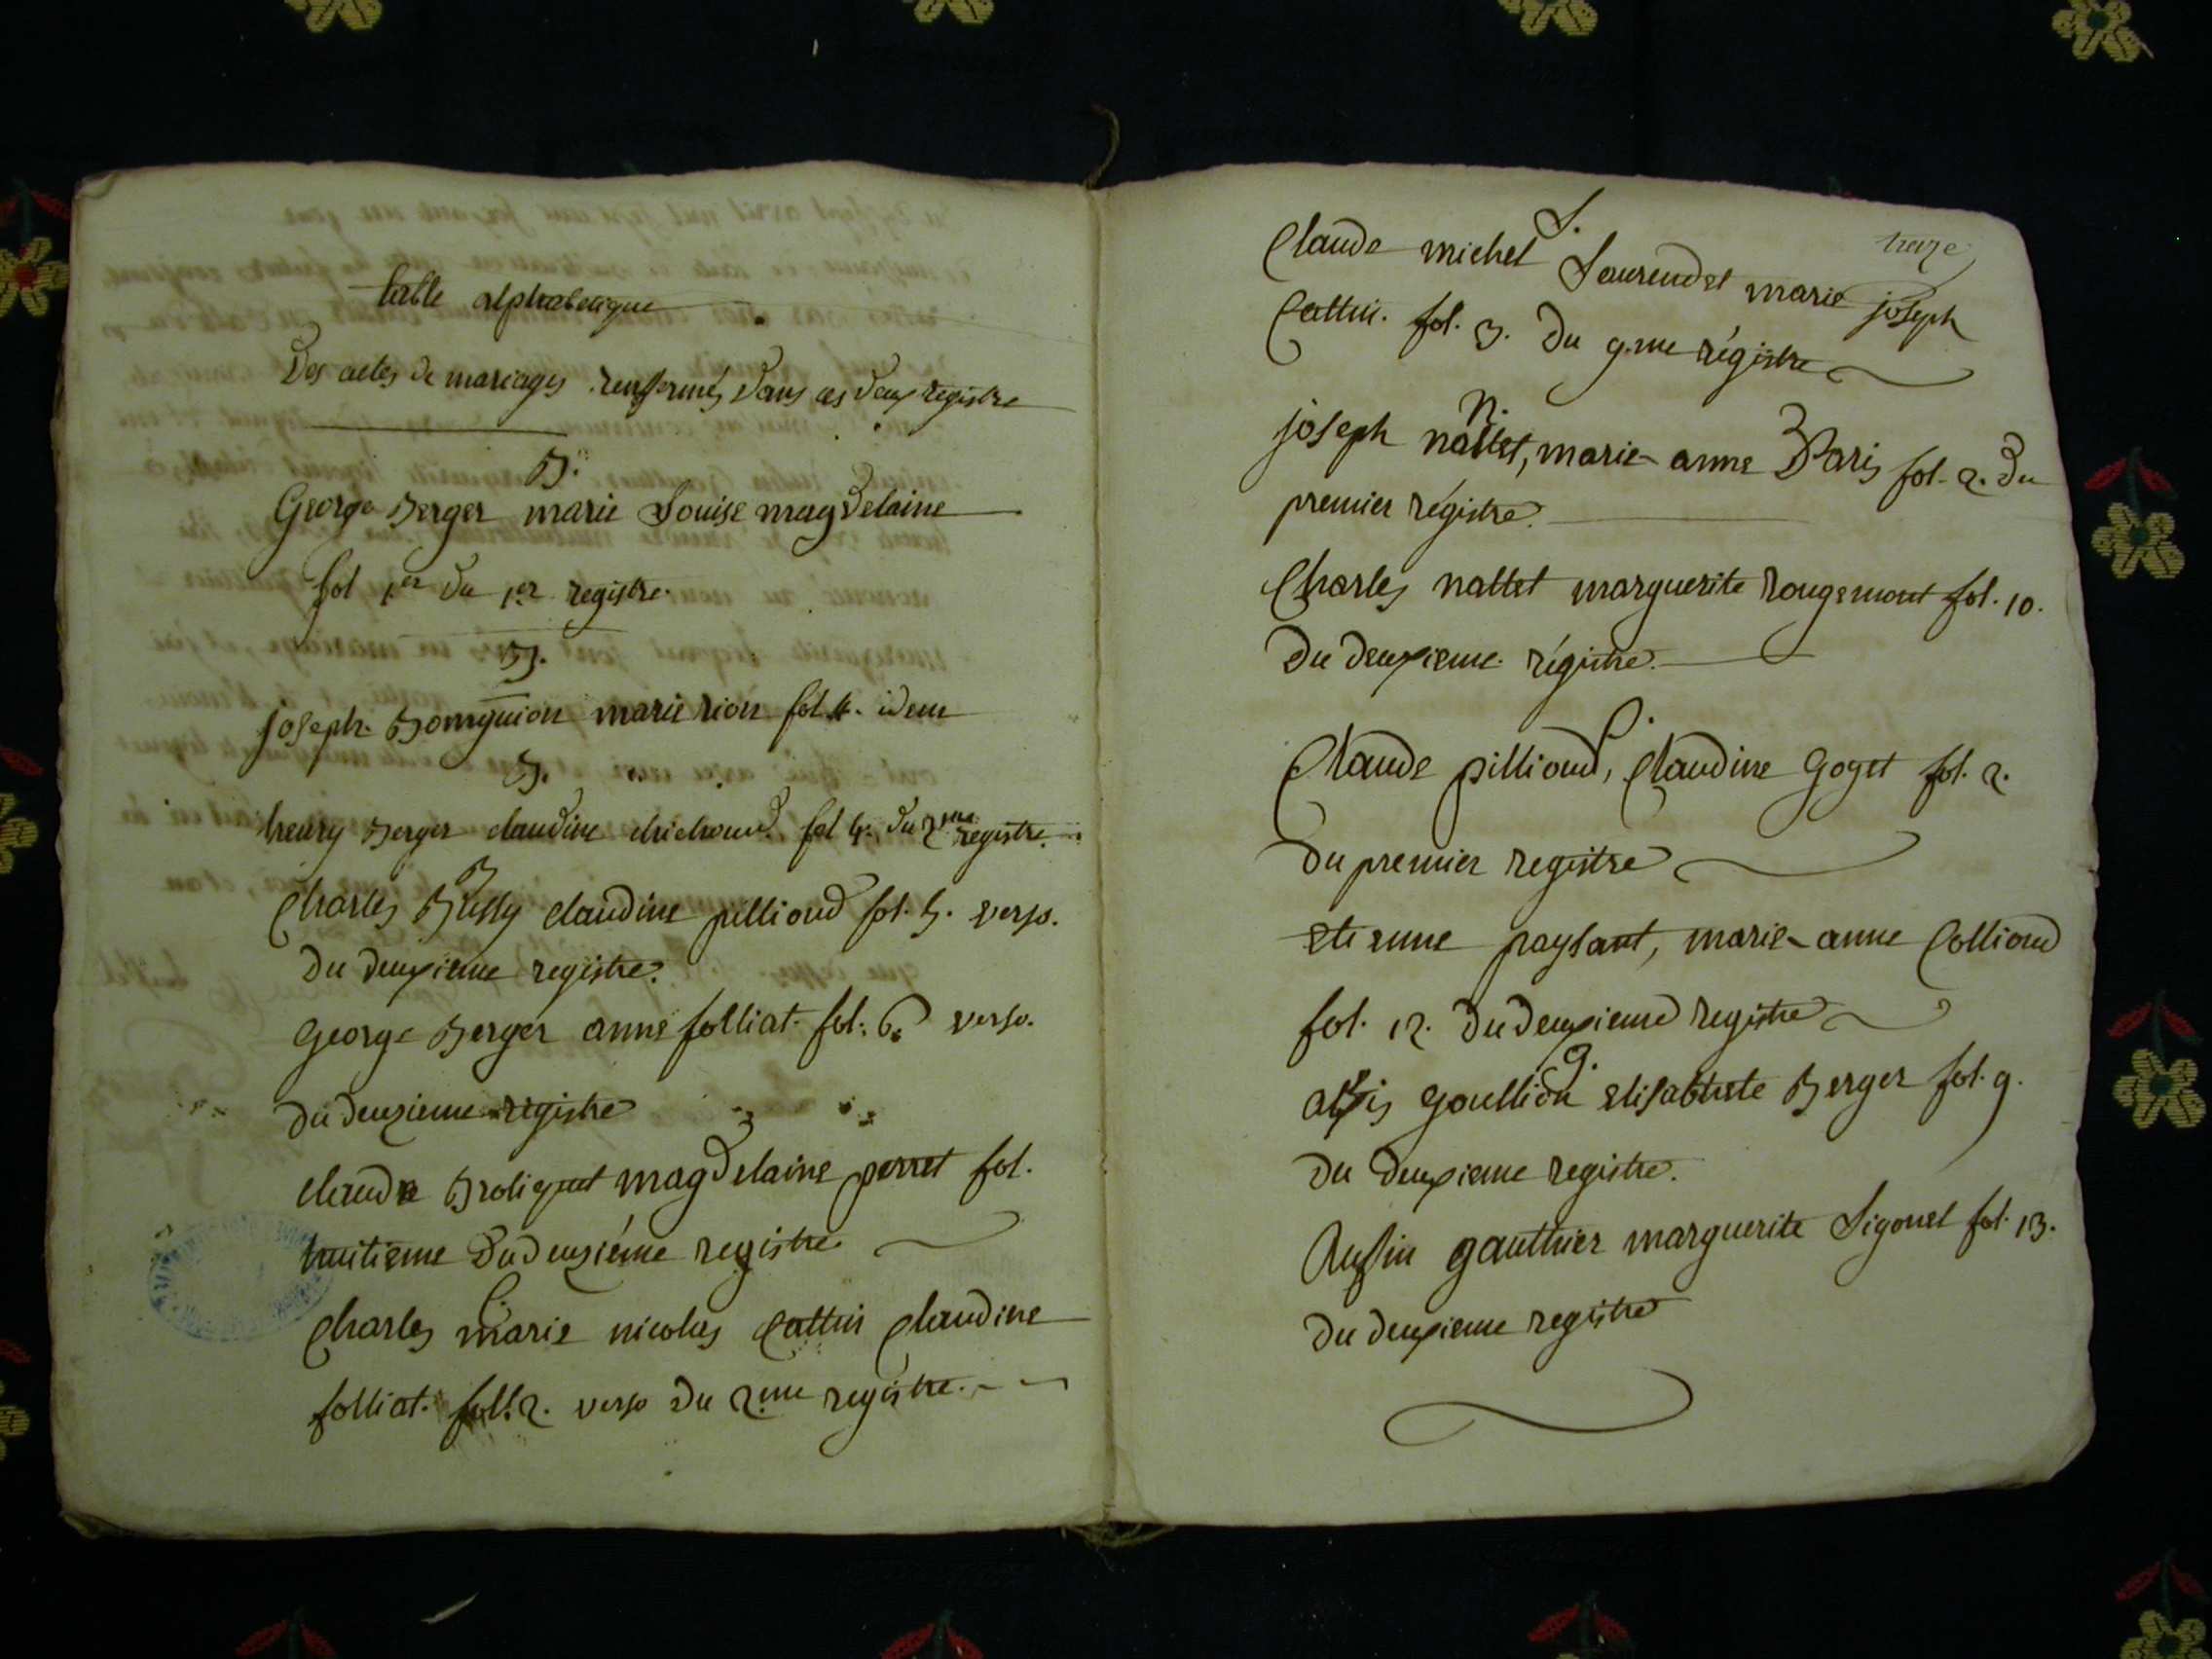 table alphabetique
Des actes de mariages renfermés dans ces deux registre
B.
George Berger marie Louise magdelaine
fol 1er du 1er registre.
B.
joseph. Bomguion marie rion fol 4. idem
B.
henry Berger claudine chichoud fol 4. du 2me registre.
B
Charles Bussy claudine pillioud fol. 5. verso.
Du deuxieme registre.
George Berger anne folliat. fol. 6. verso.
du deuxieme registre
claude Broliquet magdelaine perret fol.
huitieme du deuxiéme registre
C.
Charles marie nicolas Cattin Claudine
folliat. fol. 2. verso du 2.me registre.
treze
L.
Claude michel Laurendet marie joseph
Cattin. fol. 3. du 2.me régistre
n.
joseph nattet, marie-anne Paris fol. 2. du
premier régistre.
Charles nattet marguerite rougemont fol. 10.
Du deuxieme régistre.
P.
Claude pillioud, Claudine goget fol. 2.
Du premier registre
etienne paysant, marie-anne Collioud
fol. 12. du deuxieme registre
g.
goullion elisabthete Berger fol. 9.
Du deuxieme registre.
gauthier marguerite Ligonet fol. 13.
Du deuxieme registre